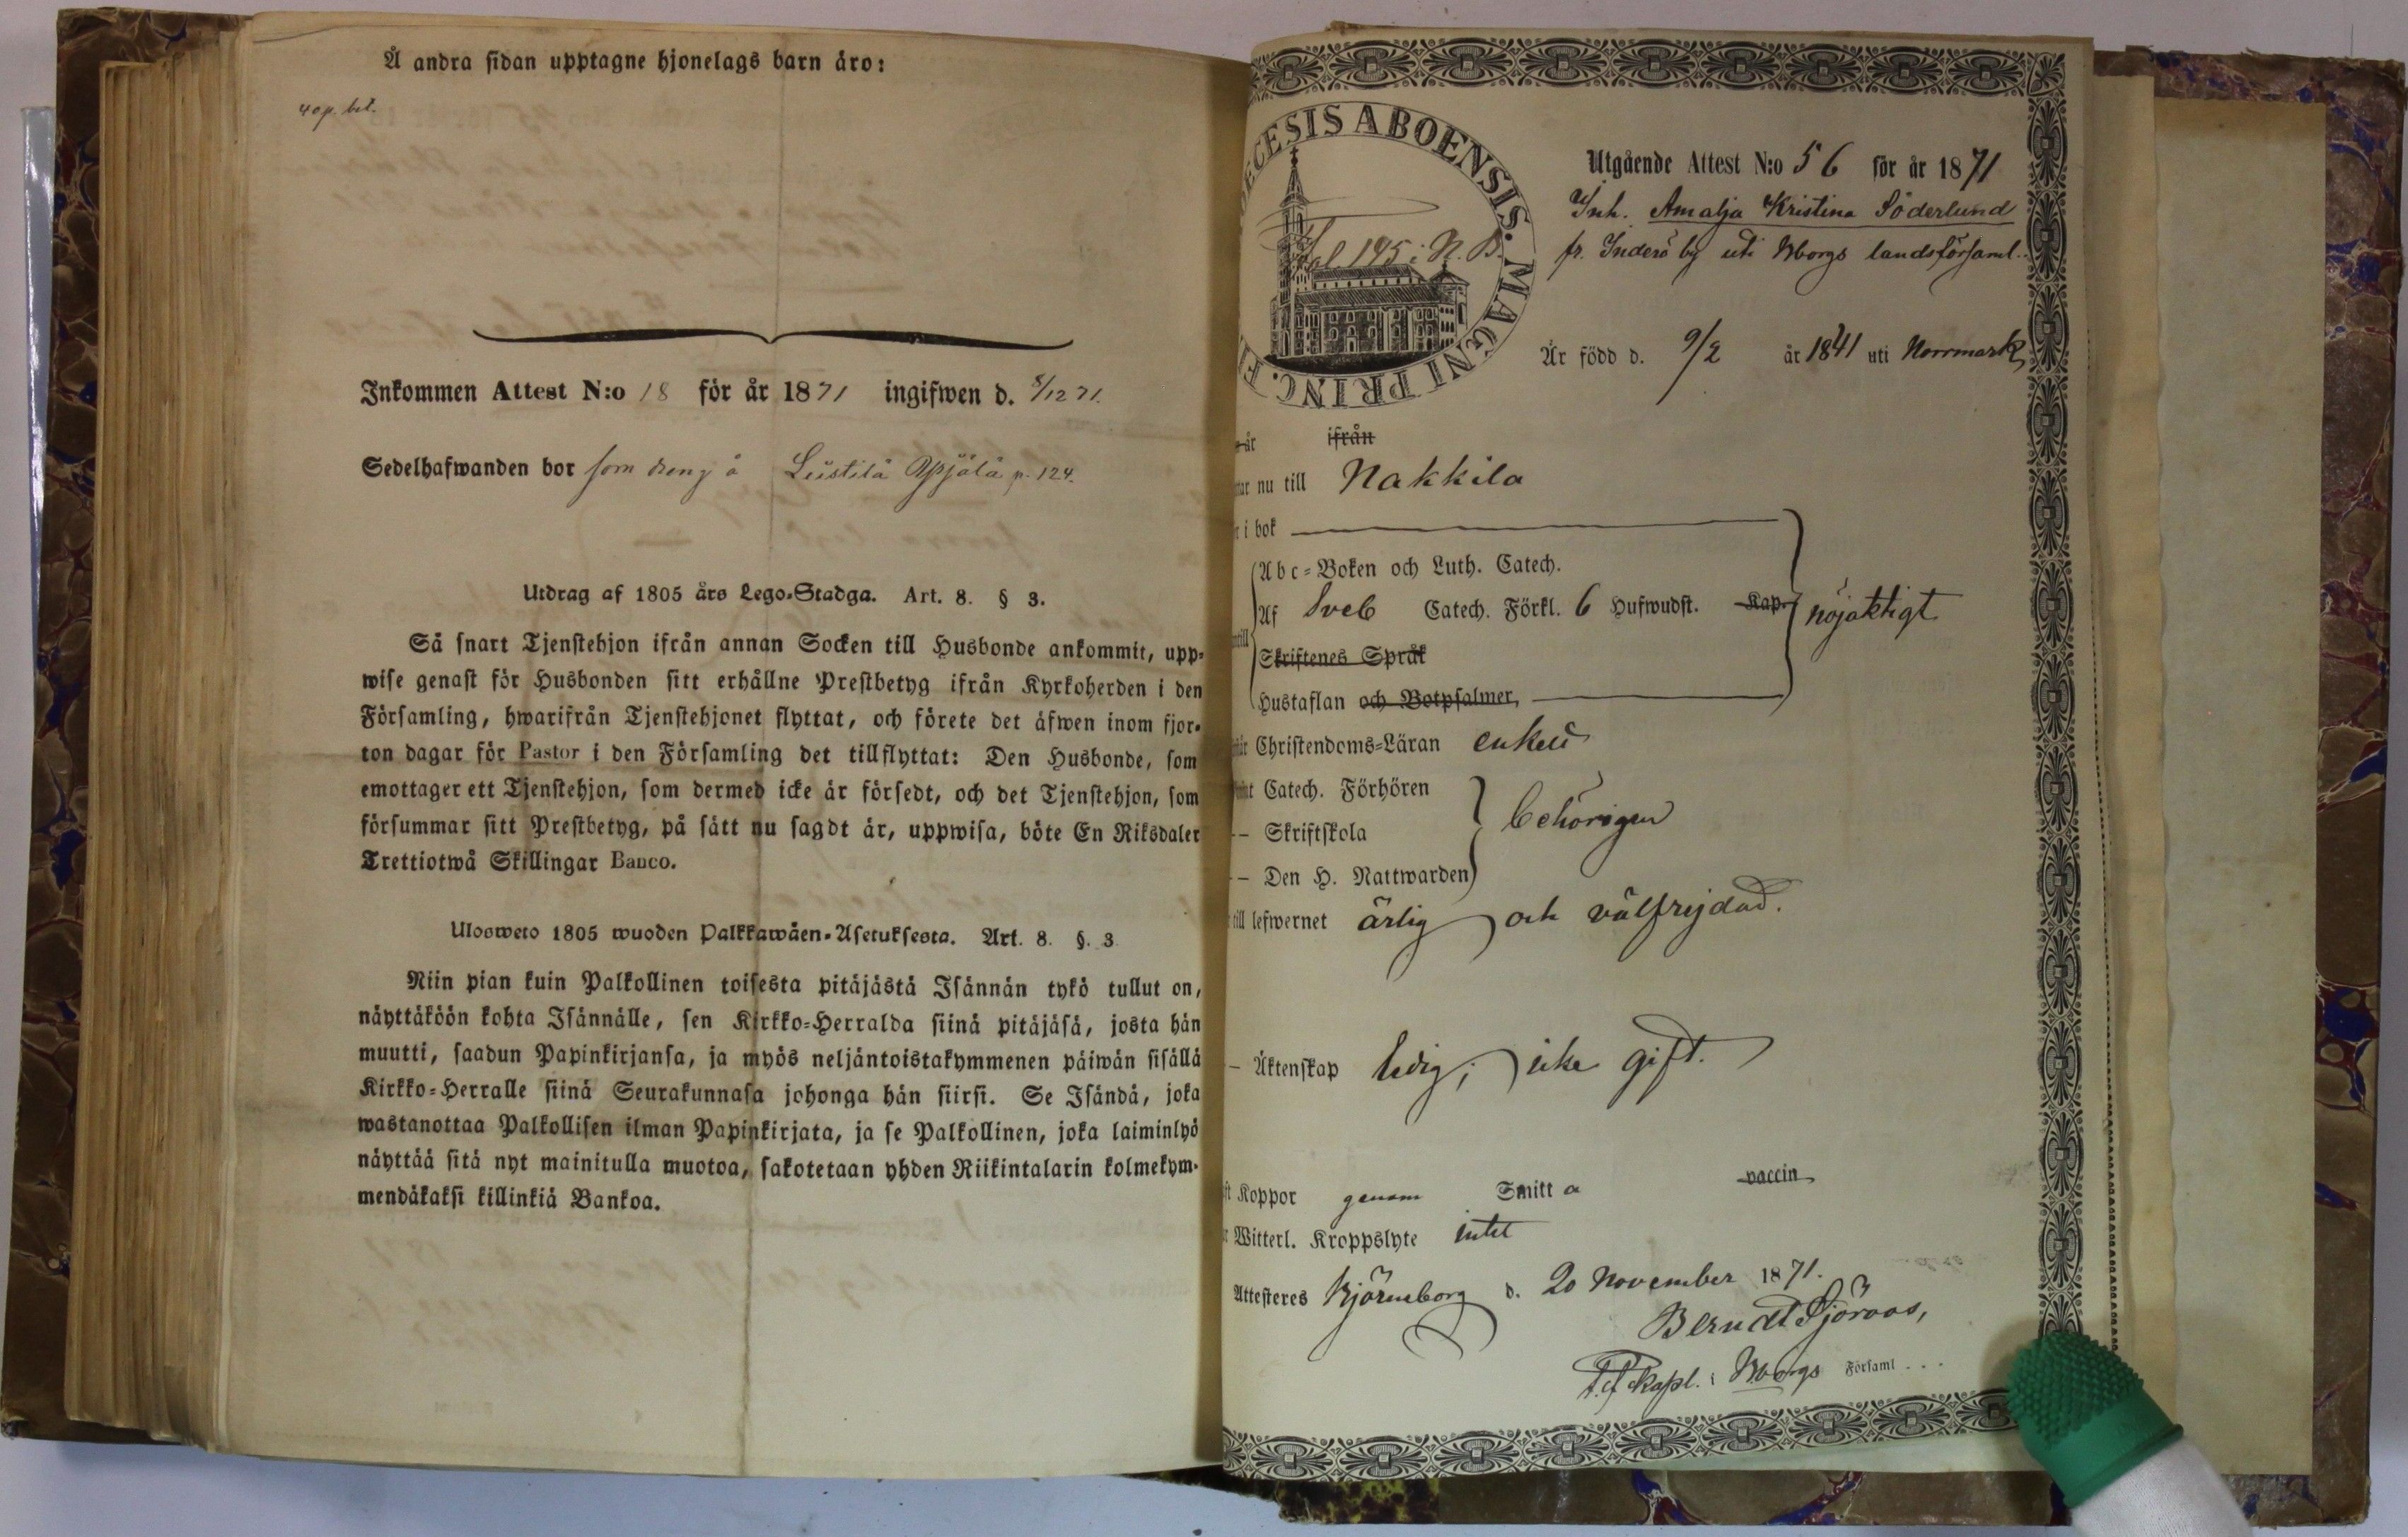 Å andra sidan upptagne hjonelags barn äro:
40 p. bet.
Inkommen Attest N:o 18 för år 1871 ingifwen d. 8/12 71.
Sedelhafwanden bor som dreng å Liistilä p. 124.
Utdrag af 1805 års Lego-Stadga. Art. 8. § 3.
Så snart Tjenstehjon ifrån annan Socken till Husbonde ankommit, upp-
wise genast för Husbonden sitt erhållne Prestbetyg ifrån Kyrkoherden i den
Församling, hwarifrån Tjenstehjonet flyttat, och förete det äfwen inom fjor-
ton dagar för Pastor i den Församling det tillflyttat: Den Husbonde, som
emottager ett Tjenstehjon, som dermed icke är försedt, och det Tjenstehjon, som
försummar sitt Prestbetyg, på sätt nu sagdt är, uppwisa, böte En Riksdaler
Trettiotwå Skillingar Banco.
Ulosweto 1805 wuoden Palkkawäen-Asetuksesta. Art. 8. §. 3
Niin pian kuin Palkollinen toisesta pitäjästä Isännän tykö tullut on,
näyttäköön kohta Isännälle, sen Kirkko-Herralda siinä pitäjäsä, josta hän
muutti, saadun Papinkirjansa, ja myös neljäntoistakymmenen päiwän sisällä
Kirkko-Herralle siinä Seurakunnasa johonga hän siirsi. Se Isändä, joka
wastanottaa Palkollisen ilman Papinkirjata, ja se Palkollinen, joka laiminlyö
näyttää sitä nyt mainitulla muotoa, sakotetaan yhden Riikintalarin kolmekym-
mendäkaksi killinkiä Bankoa.
ECESIS ABOENSIS. MAGNI PRINC. F
Fol. 195 i N. B.
Utgående Attest N:o 56 för år 1871
Inh. Amalja Kristina Söderlund
fr. Inderö by uti Bborgs landsförsaml.
Är född d. 9/2 år 1841 uti Norrmark
år ifrån
nu till Nakkila
i bok
Abc-Boken och Luth. Catech.
Af Sveb Catech. Förkl. 6 Hufwudst. Kap. nöjaktigt
Skriftenes Språk
Hustaflan och Botpsalmer,
Christendoms-Läran enkelt
Catech. Förhören
behörigen
– Skriftskola
– Den H. Nattwarden
till lefwernet ärlig och välfrejdad.
– Äktenskap ledig; icke gift.
Koppor genom Smitta vaccin
Witterl. Kroppslyte intet
Attesteres Björneborg d. 20 November 1871.
Berndt Sjöroos,
T.f. Kapl. i Bborgs Församl...